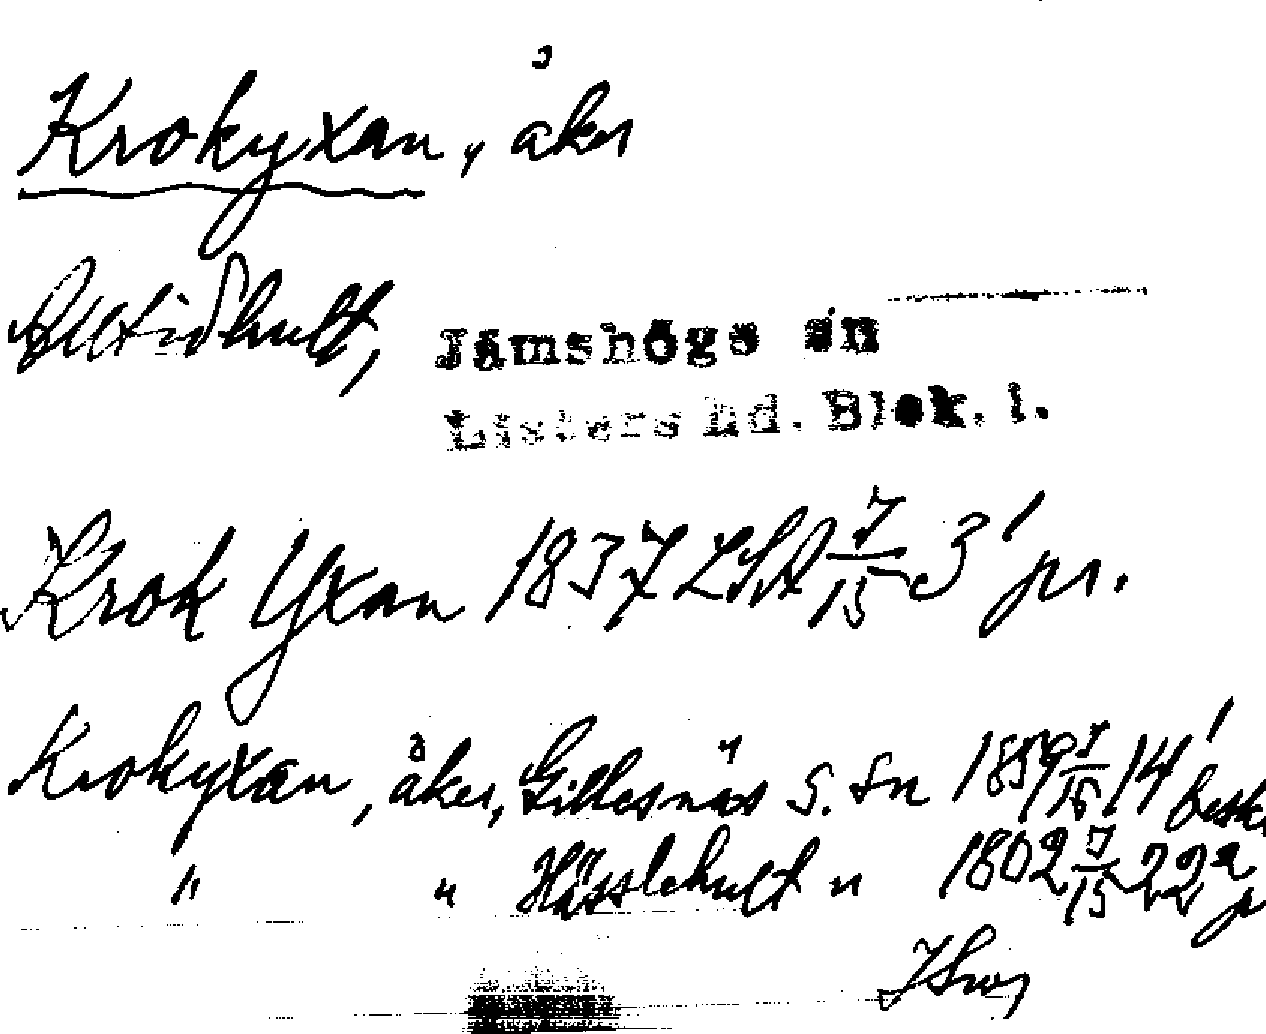 Krokyxan, åker
Alltidhult,
Jämshögs sn
Listers hd. Blek. l.
Krok Yxan 1837 LSA 7/15 3' pr.
Krokyxan, åker, Gillesnäs S. sn 1859 7/15 14' besk
" " Hässlehult " 1802 7/15 22a p